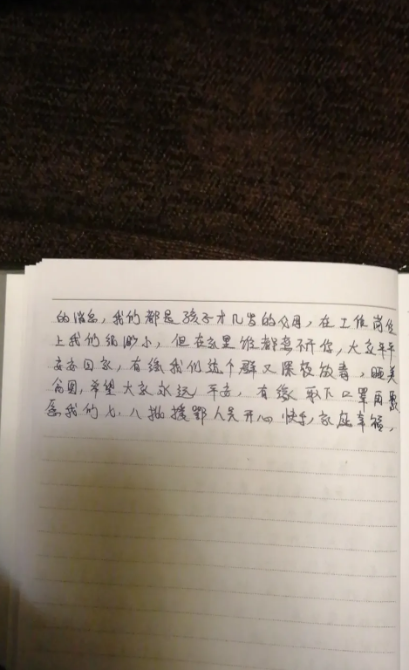 的消息，我们都是孩子才几岁的父母，在工作岗位
上我们很渺小，但在家里谁都离不开您，大家平平
安安回家，有缘我们这个群又
合同，希望大家永远平安，有缘取下口罩再聚
愿我们七、八批援鄂人员开心快乐，家庭幸福，